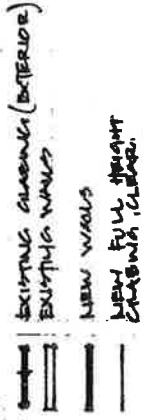 EXISTING GLAZING (EXTERIOR)
EXISTING WALLS
NEW WALLS
NEW FULL HEIGHT
GLAZING, CLEAR.